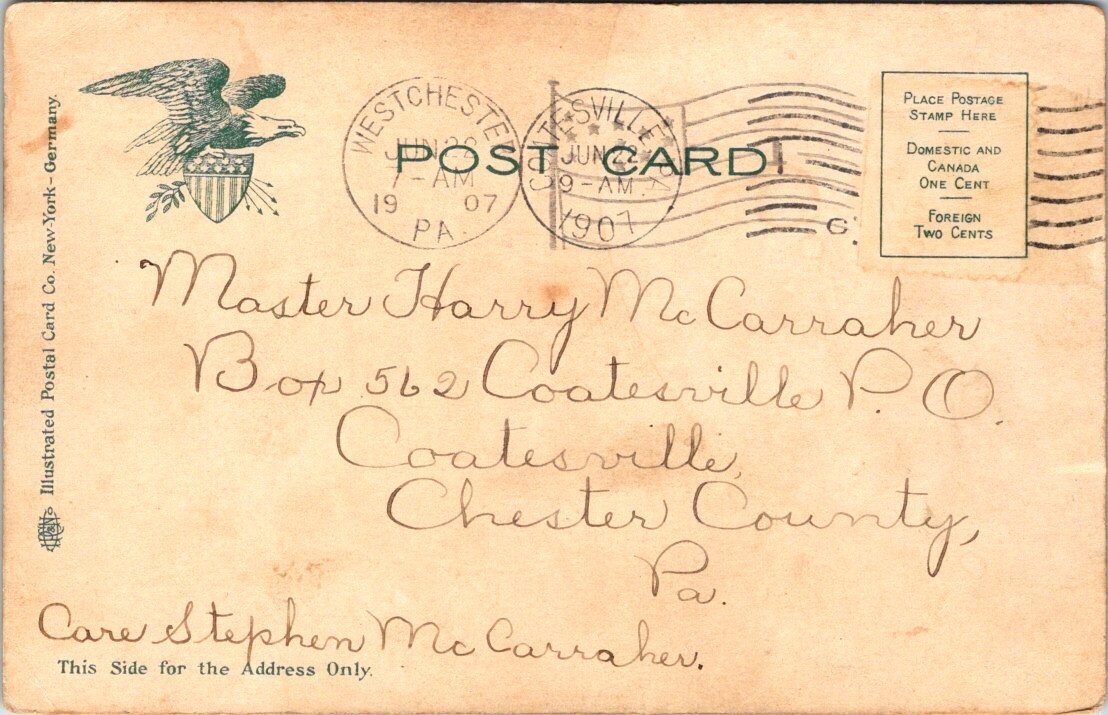 Illustrated Postal Card Co. New-York - Germany.
WESTCHESTER
JUN 22
7-AM
19 07
PA.
COATESVILLE, PA
JUN 22
9-AM.
1907
POST CARD
G.
PLACE POSTAGE
STAMP HERE
DOMESTIC AND
CANADA
ONE CENT
FOREIGN
TWO CENTS
Master Harry McCarraher
Box 562 Coatesville P.O.
Coatesville,
Chester County,
Pa.
Care Stephen McCarraher.
This Side for the Address Only.